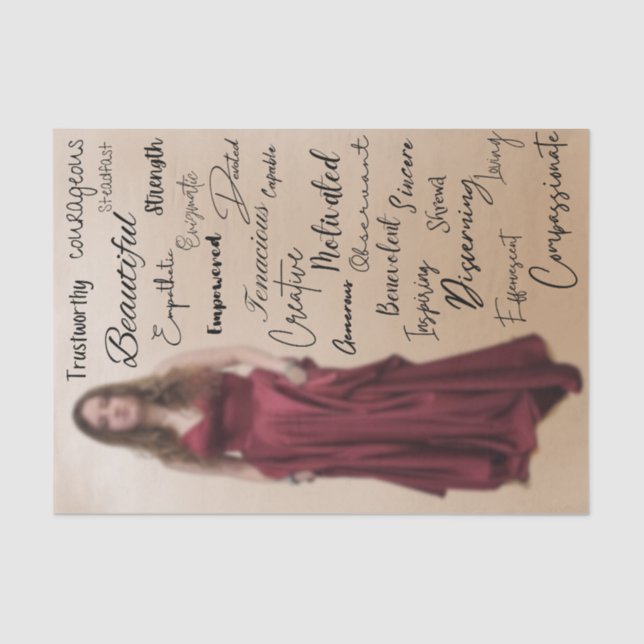 Trustworthy courageous
Steadfast
Beautiful
Strength
Empathetic Enigmatic
Empowered Devoted
Tenacious Capable
Creative
Motivated
Generous Observant
Benevolent Sincere
Inspiring Shrewd
Discerning Loving
Effervescent
Compassionate